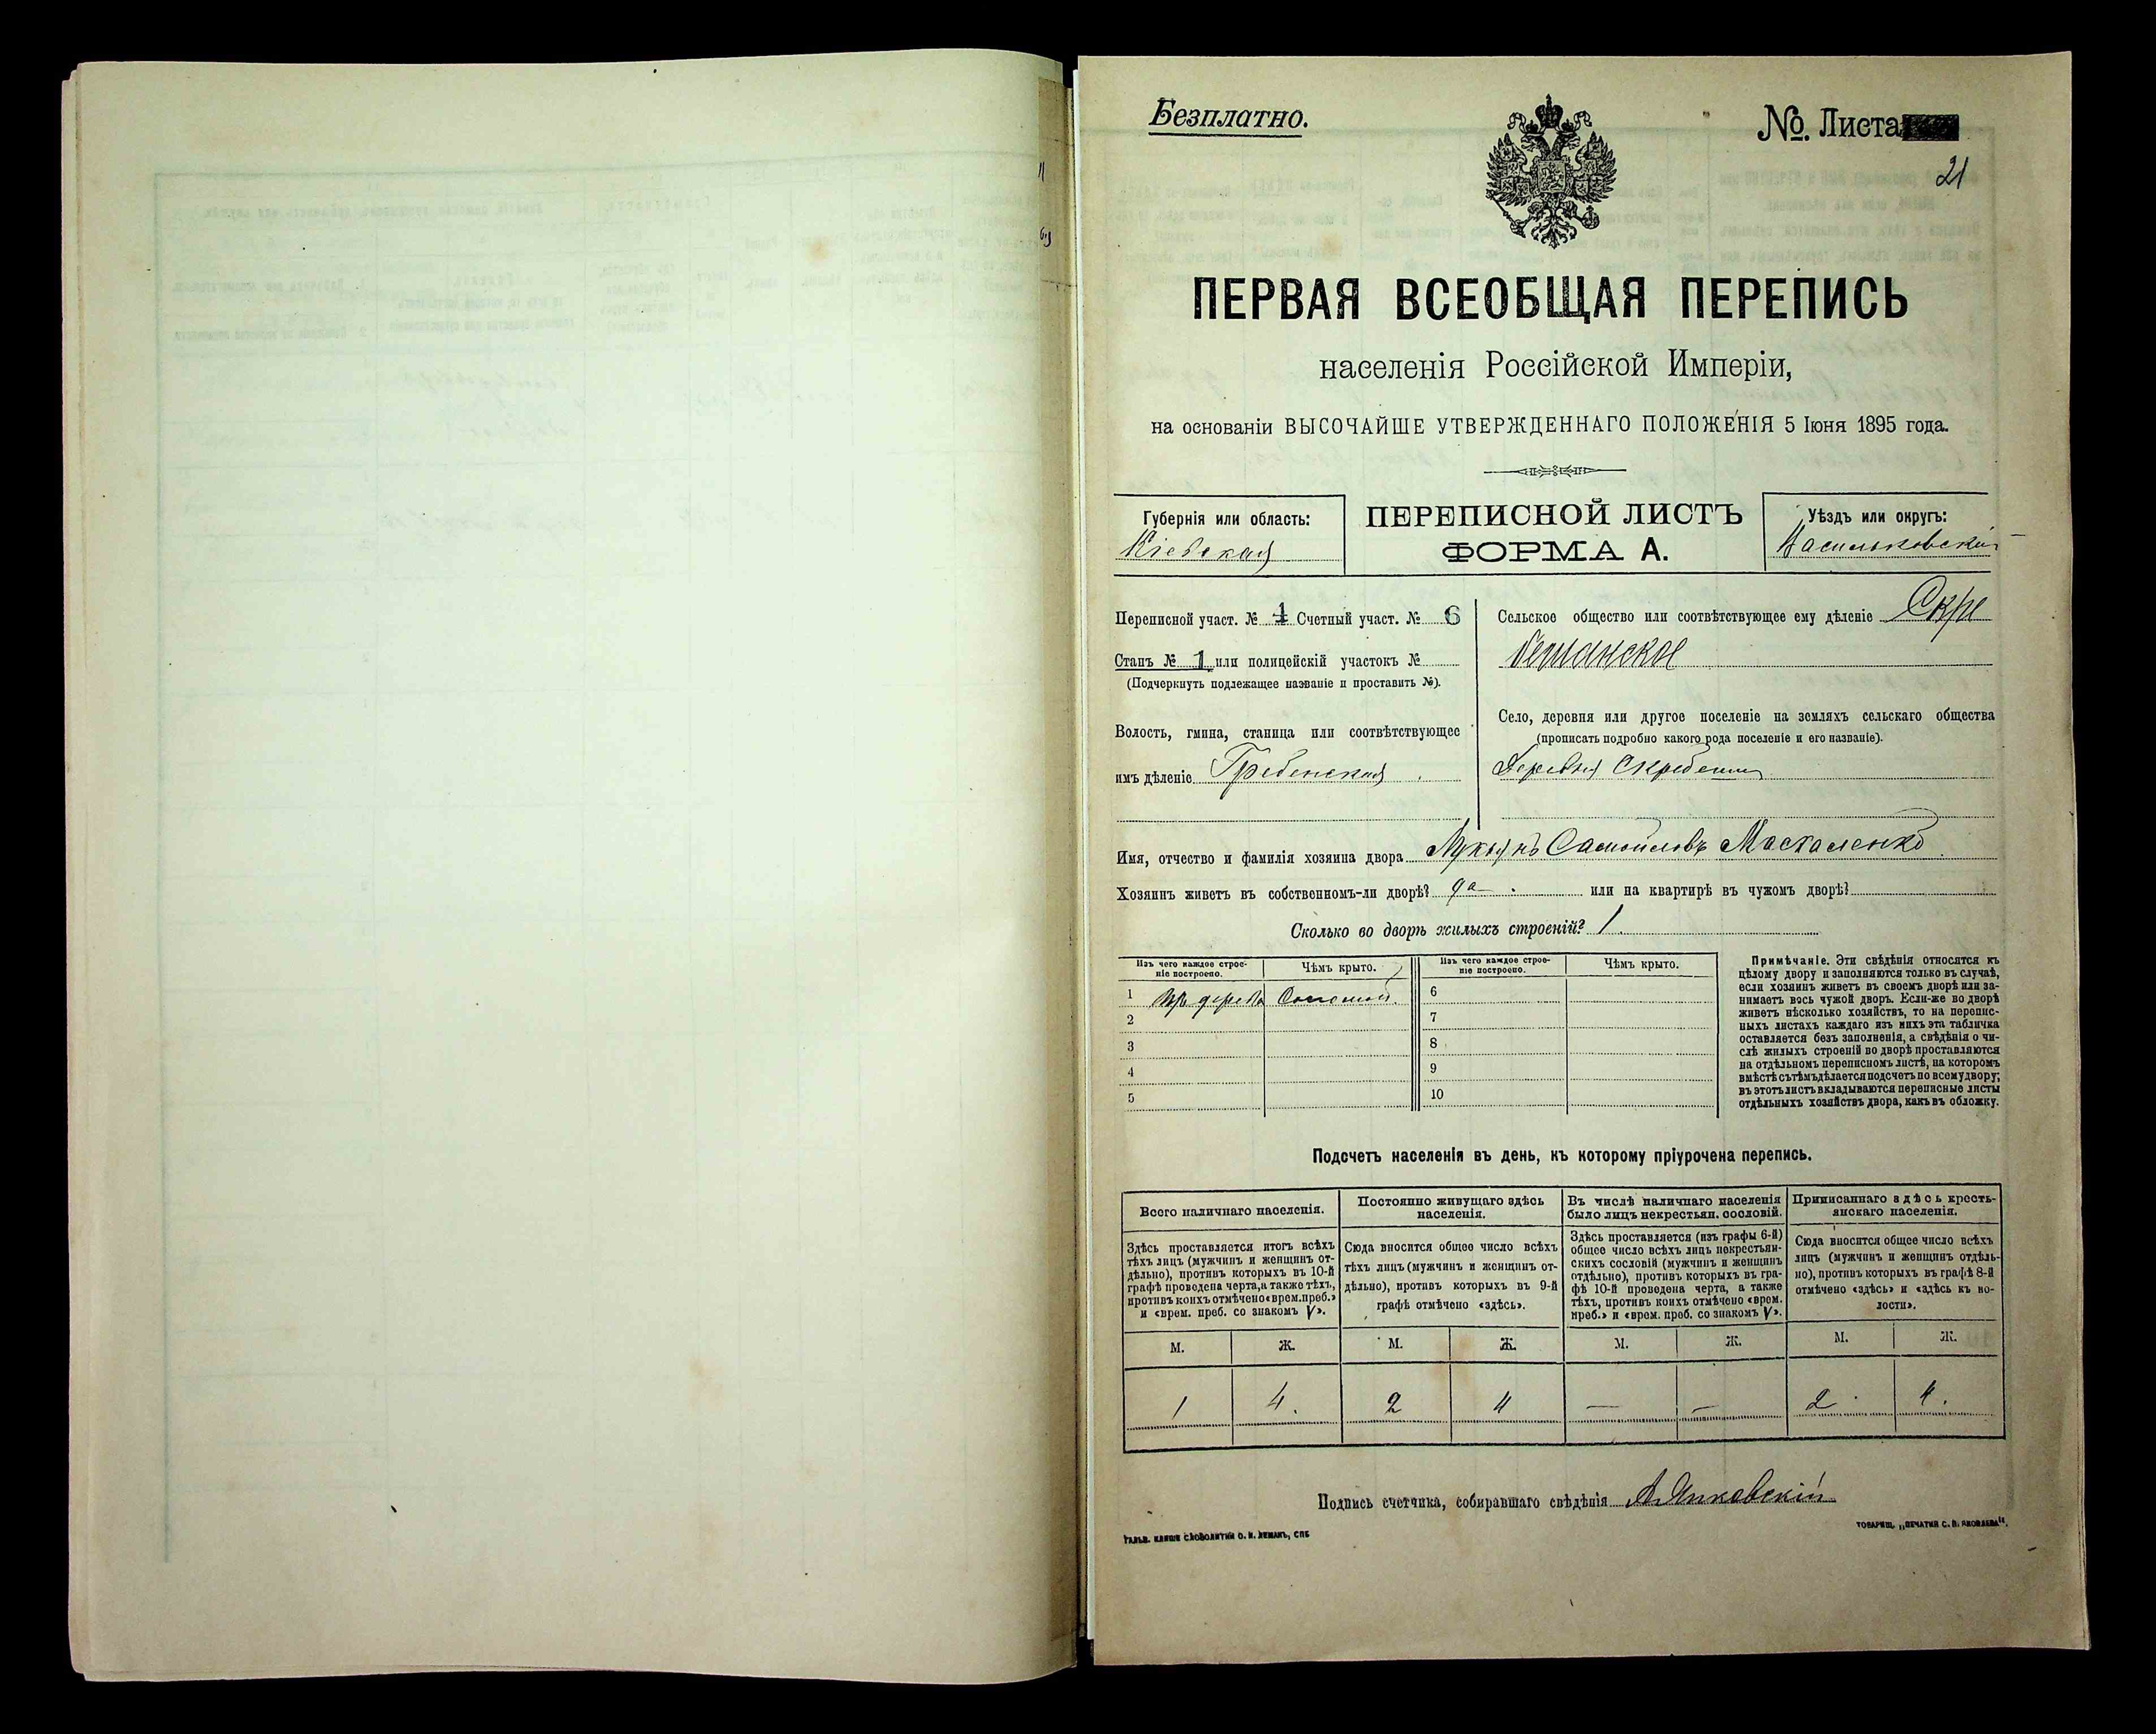 Безплатно.
№ Листа
21
ПЕРВАЯ ВСЕОБЩАЯ ПЕРЕПИСЬ
населенія Россійской Имперіи,
на основаніи ВЫСОЧАЙШЕ УТВЕРЖДЕННАГО ПОЛОЖЕНІЯ 5 Іюня 1895 года.
Губернія или область:
Кіевская
ПЕРЕПИСНОЙ ЛИСТЪ
ФОРМА А.
Уѣздъ или округъ:
Васильковскій
Переписной участ. № 1 Счетный участ. № 6
Станъ № 1 или полицейскій участокъ №
(Подчеркнуть подлежащее названіе и проставить №).
Волость, гмина, станица или соотвѣтствующее
имъ дѣленіе Гребенская
Сельское общество или соотвѣтствующее ему дѣленіе Скре
бешанское
Село, деревня или другое поселеніе на земляхъ сельскаго общества
(прописать подробно какого рода поселеніе и его названіе).
Деревня Скребеши
Имя, отчество и фамилія хозяина двора Лукьянъ Самойловъ Маскаленко
Хозяинъ живетъ въ собственномъ-ли дворѣ? да или на квартирѣ въ чужомъ дворѣ?
Сколько во дворѣ жилыхъ строеній? 1
Изъ чего каждое строе-
ніе построено.
Чѣмъ крыто.
Изъ чего каждое строе-
ніе построено.
Чѣмъ крыто.
1 Изъ дерева Соломой
2
3
4
5
6
7
8
9
10
Примѣчаніе. Эти свѣдѣнія относятся къ
цѣлому двору и заполняются только въ случаѣ,
если хозяинъ живетъ въ своемъ дворѣ или за-
нимаетъ весь чужой дворъ. Если-же во дворѣ
живетъ нѣсколько хозяйствъ, то на перепис-
ныхъ листахъ каждаго изъ нихъ эта табличка
оставляется безъ заполненія, а свѣдѣнія о чи-
слѣ жилыхъ строеній во дворѣ проставляются
на отдѣльномъ переписномъ листѣ, на которомъ
вмѣстѣ съ тѣмъ дѣлается подсчетъ по всему двору;
въ этотъ листъ вкладываются переписные листы
отдѣльныхъ хозяйствъ двора, какъ въ обложку.
Подсчетъ населенія въ день, къ которому пріурочена перепись.
Всего наличнаго населенія.
Здѣсь проставляется итогъ всѣхъ
тѣхъ лицъ (мужчинъ и женщинъ от-
дѣльно), противъ которыхъ въ 10-й
графѣ проведена черта, а также тѣхъ,
противъ коихъ отмѣчено «врем. преб.»
и «врем. преб. со знакомъ V».
Постоянно живущаго здѣсь
населенія.
Сюда вносится общее число всѣхъ
тѣхъ лицъ (мужчинъ и женщинъ от-
дѣльно), противъ которыхъ въ 9-й
графѣ отмѣчено «здѣсь».
Въ числѣ наличнаго населенія
было лицъ некрестьян. сословій.
Здѣсь проставляется (изъ графы 6-й)
общее число всѣхъ лицъ некрестьян-
скихъ сословій (мужчинъ и женщинъ
отдѣльно), противъ которыхъ въ гра-
фѣ 10-й проведена черта, а также
тѣхъ, противъ коихъ отмѣчено «врем.
преб.» и «врем. преб. со знакомъ V».
Приписаннаго здѣсь кресть-
янскаго населенія.
Сюда вносится общее число всѣхъ
лицъ (мужчинъ и женщинъ отдѣль-
но), противъ которыхъ въ графѣ 8-й
отмѣчено «здѣсь» и «здѣсь къ во-
лости».
М. Ж. М. Ж. М. Ж. М. Ж.
1 4. 2 4 — — 2 4.
Подпись счетчика, собиравшаго свѣдѣнія А. Янковскій
ГАЛЬВ. КЛИШЕ СЛОВОЛИТНИ О. И. ЛЕМАНЪ, СПБ
ТОВАРИЩ. „ПЕЧАТНЯ С. П. ЯКОВЛЕВА“.